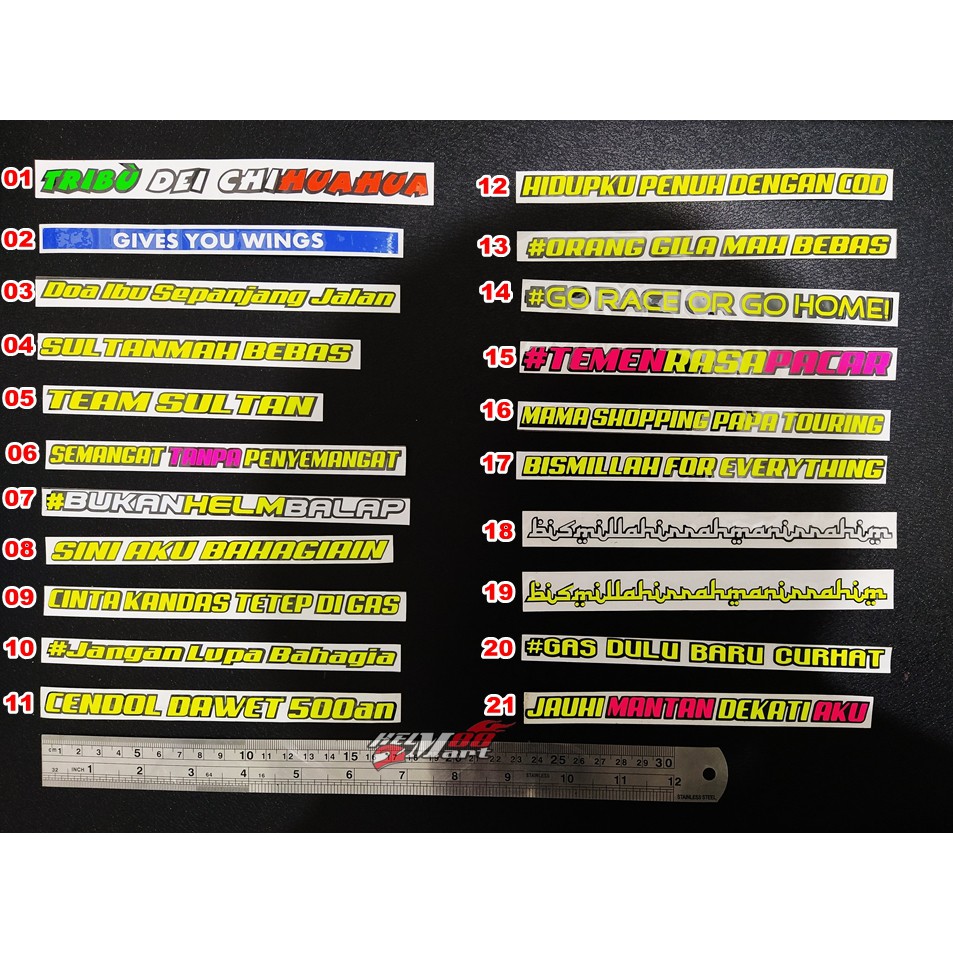 01 TRIBÙ DEI CHIHUAHUA
02 GIVES YOU WINGS
03 Doa Ibu Sepanjang Jalan
04 SULTANMAH BEBAS
05 TEAM SULTAN
06 SEMANGAT TANPA PENYEMANGAT
07 #BUKANHELMBALAP
08 SINI AKU BAHAGIAIN
09 CINTA KANDAS TETEP DI GAS
10 #Jangan Lupa Bahagia
11 CENDOL DAWET 500an
12 HIDUPKU PENUH DENGAN COD
13 #ORANG GILA MAH BEBAS
14 #GO RACE OR GO HOME!
15 #TEMENRASAPACAR
16 MAMA SHOPPING PAPA TOURING
17 BISMILLAH FOR EVERYTHING
18 Bismillahirrahmanirrahim
19 Bismillahirrahmanirrahim
20 #GAS DULU BARU CURHAT
21 JAUHI MANTAN DEKATI AKU
HELM 88 Mart
cm 1 2 5 10 15 20 25 30
32 INCH 1 2 3 64 4 16 5 6 7 8 9 STAINLESS 10 11 12
STAINLESS STEEL